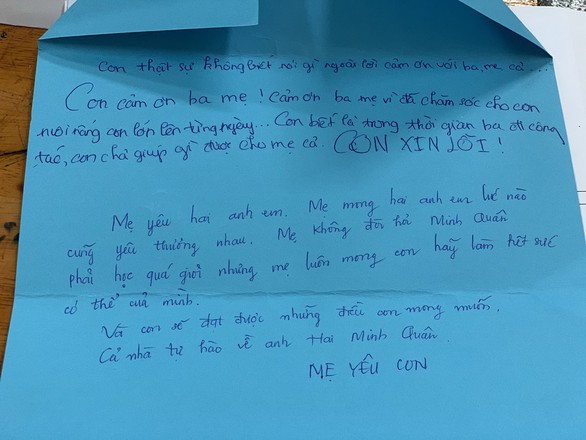 Con thật sự không biết nói gì ngoài lời cảm ơn với ba, mẹ cả...
Con cảm ơn ba mẹ! Cảm ơn ba mẹ vì đã chăm sóc cho con
nuôi nấng con lớn lên từng ngày... Con biết là trong thời gian ba đi công
tác, con chả giúp gì được cho mẹ cả. CON XIN LỖI!
Mẹ yêu hai anh em. Mẹ mong hai anh em lúc nào
cũng yêu thương nhau. Mẹ không đòi hỏi Minh Quân
phải học quá giỏi nhưng mẹ luôn mong con hãy làm hết sức
có thể của mình.
Và con sẽ đạt được những điều con mong muốn.
Cả nhà tự hào về anh Hai Minh Quân.
MẸ YÊU CON